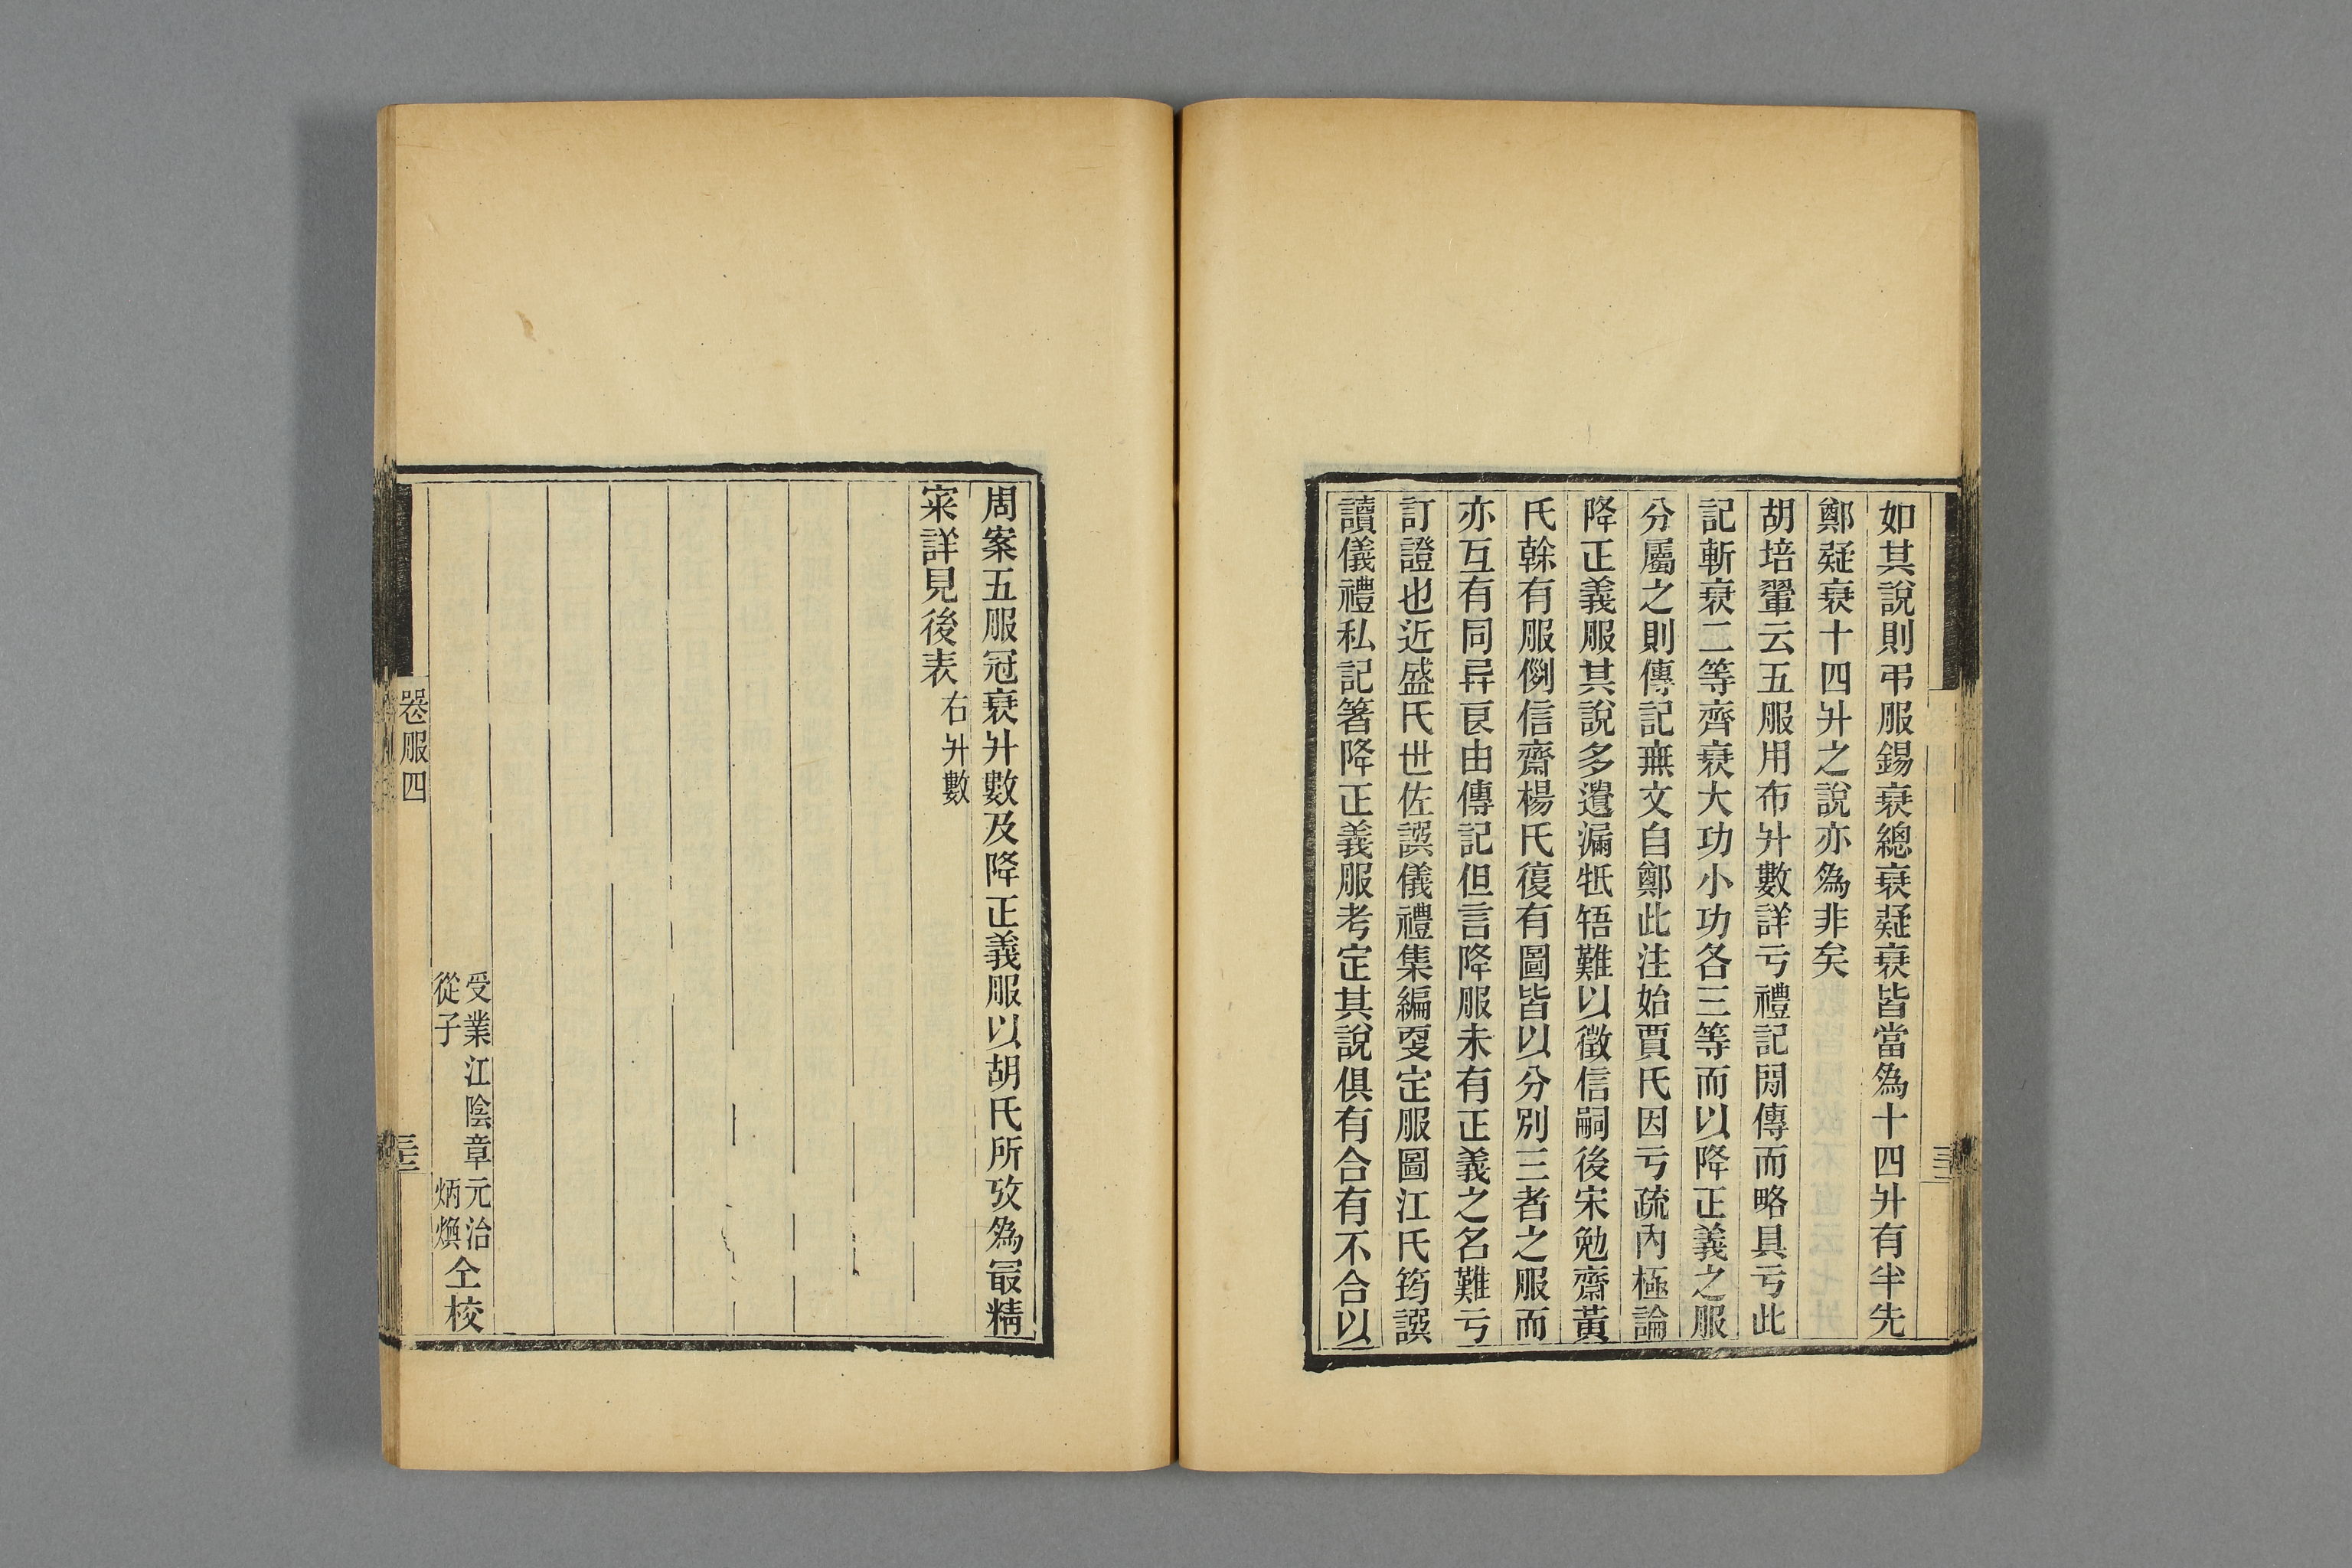 如其說則弔服錫衰總衰疑衰皆當爲十四升有半先
鄭疑衰十四升之說亦爲非矣
胡培翬云五服用布升數詳亏禮記閒傳而略具亏此
記斬衰二等齊衰大功小功各三等而以降正義之服
分屬之則傳記無文自鄭此注始賈氏因亏疏內極論
降正義服其說多遺漏牴牾難以徵信嗣後宋勉齋黃
氏榦有服例信齋楊氏復有圖皆以分別三者之服而
亦互有同异良由傳記但言降服未有正義之名難亏
訂證也近盛氏世佐譔儀禮集編㪅定服圖江氏筠譔
讀儀禮私記箸降正義服考定其說俱有合有不合以
周案五服冠衰升數及降正義服以胡氏所攷爲冣精
宷詳見後表 右升數
受業江陰章元治
從子 炳煥 仝校
卷服四
三三